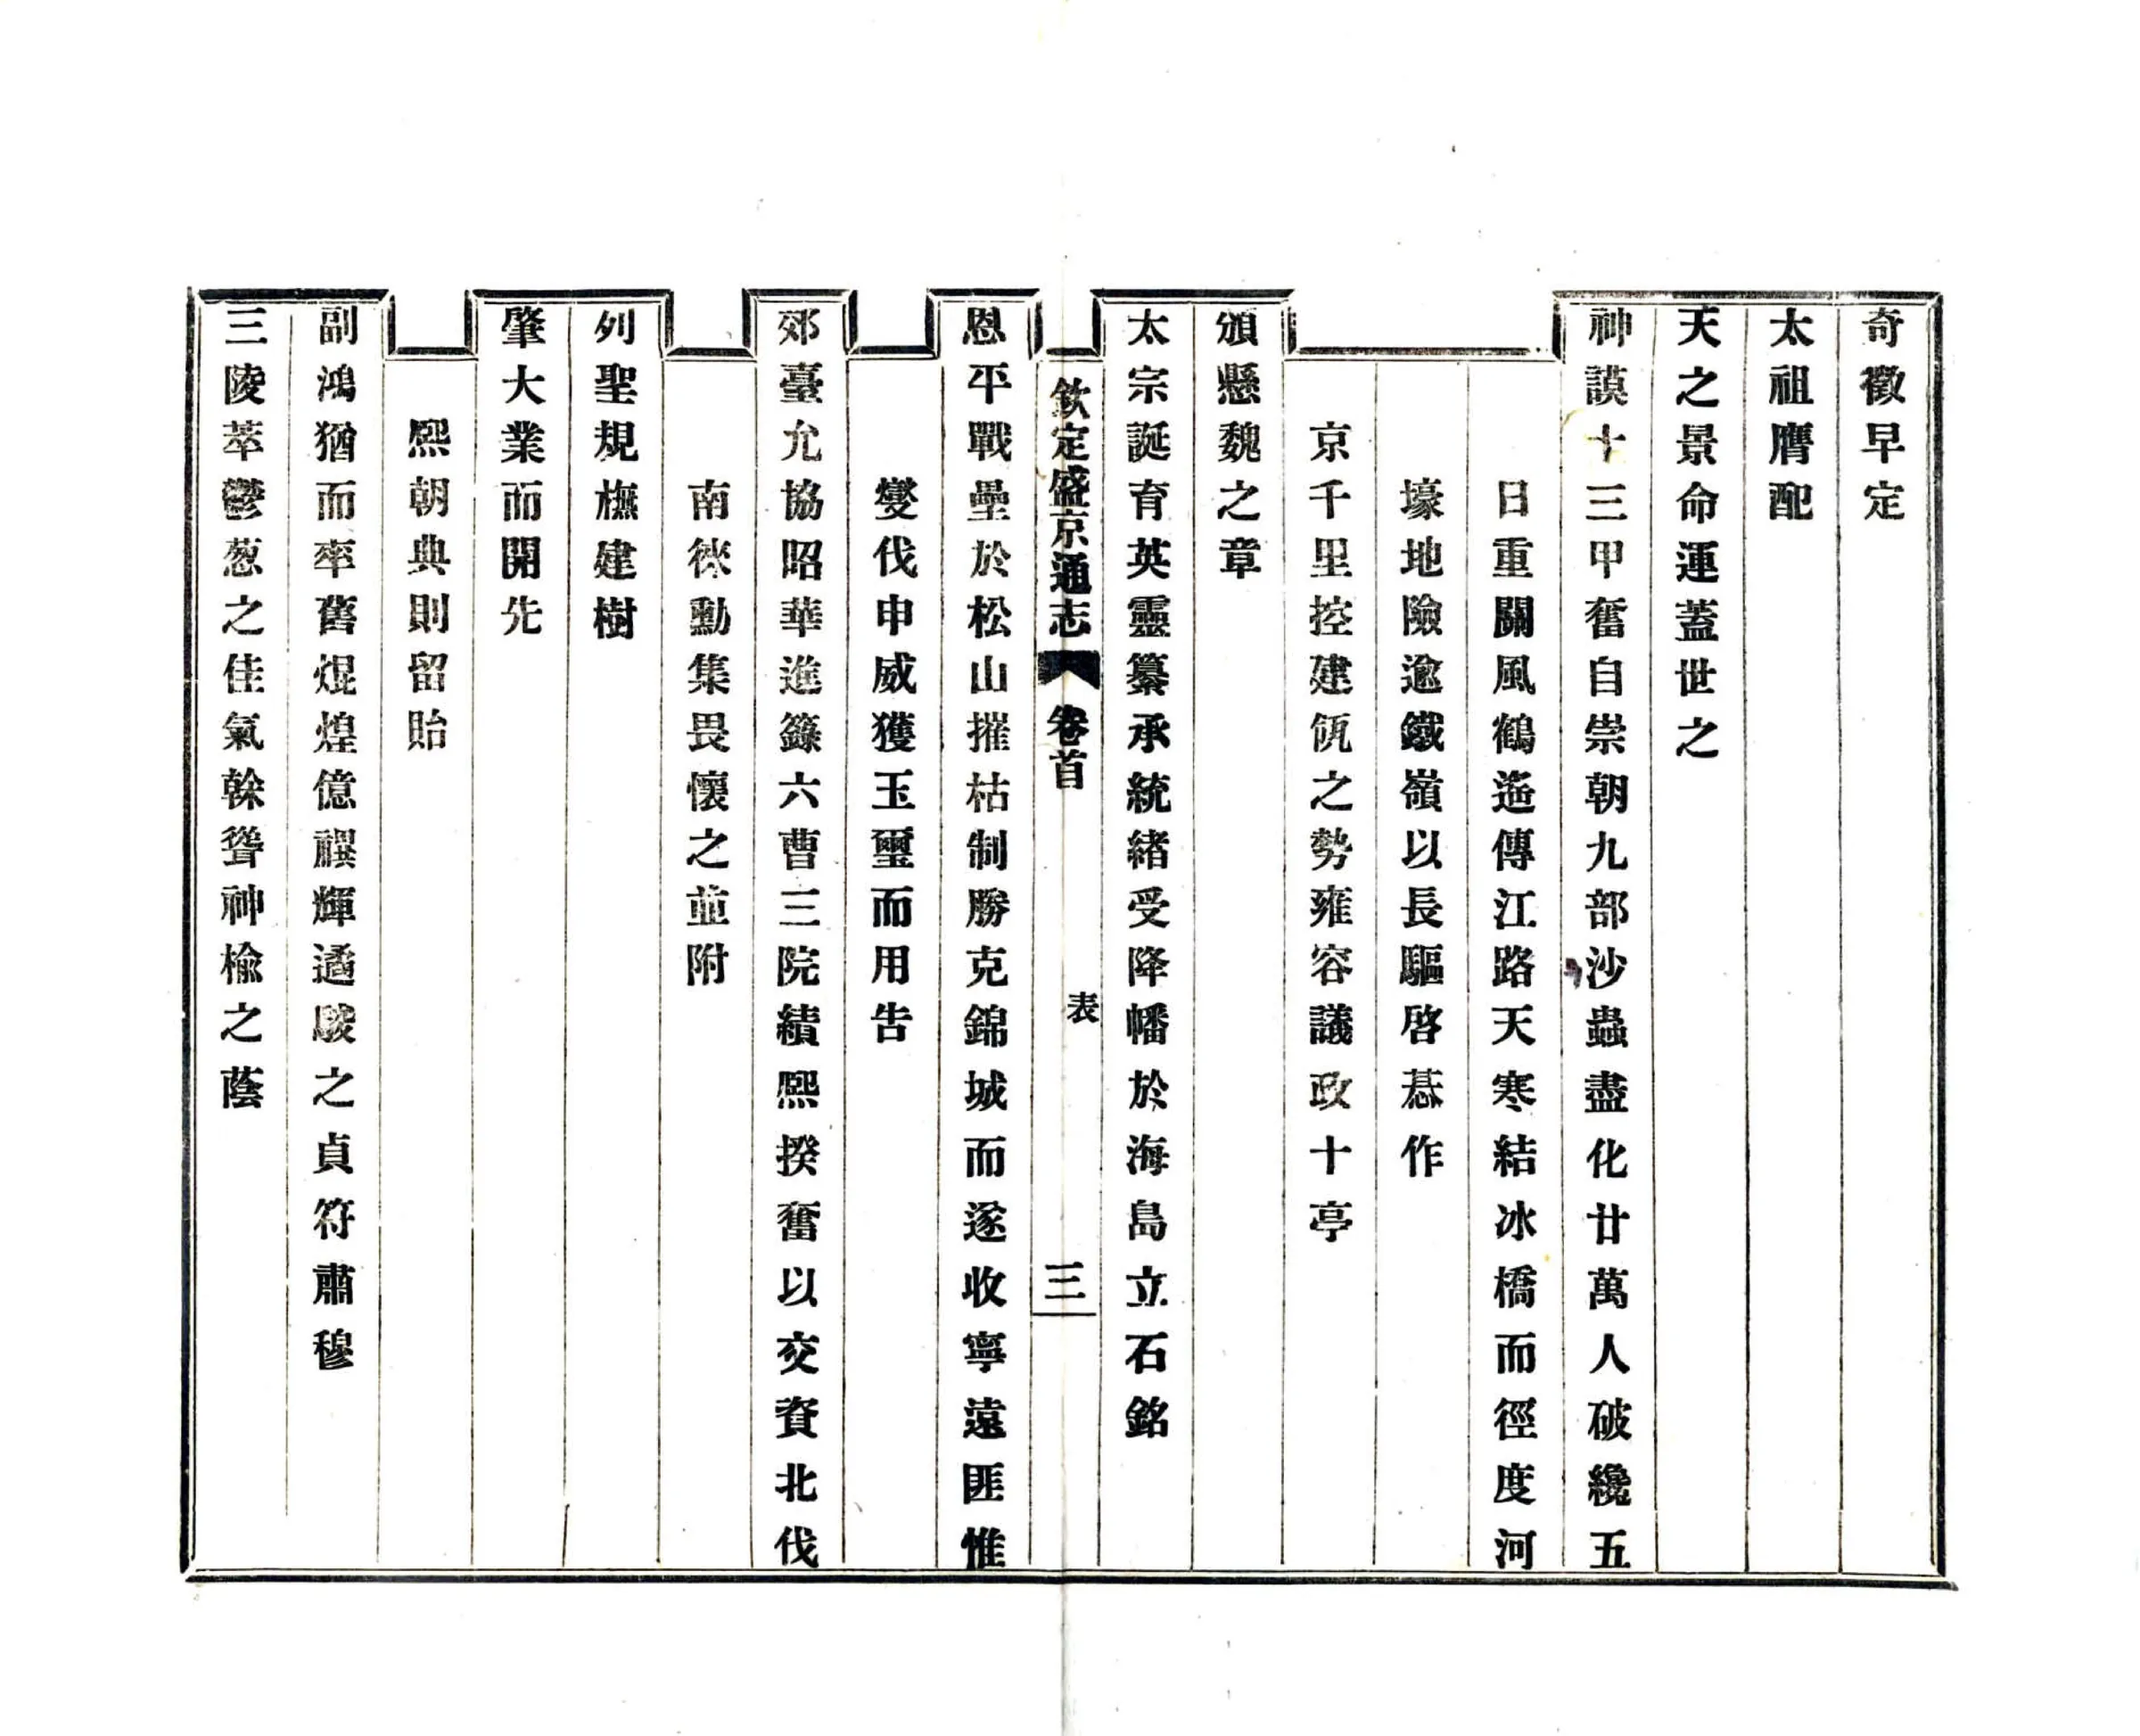 奇徵早定
太祖膺配
天之景命運蓋世之
神謨十三甲奮自崇朝九部沙蟲盡化廿萬人破纔五
日重關風鶴遙傳江路天寒結冰橋而徑度河
壕地險逾鐵嶺以長驅啓惎作
京千里控建瓴之勢雍容議政十亭
頒懸魏之章
太宗誕育英靈纂承統緒受降幡於海島立石銘
欽定盛京通志 卷首 表 三
恩平戰壘於松山摧枯制勝克錦城而遂收寧遠匪惟
燮伐申威獲玉璽而用告
郊臺允協昭華進籙六曹三院績熙揆奮以交資北伐
南徠勳集畏懷之並附
列聖規橅建樹
肇大業而開先
熙朝典則留貽
副鴻猶而率舊焜煌億禩輝遹駿之貞符肅穆
三陵萃鬱葱之佳氣榦聳神楡之蔭